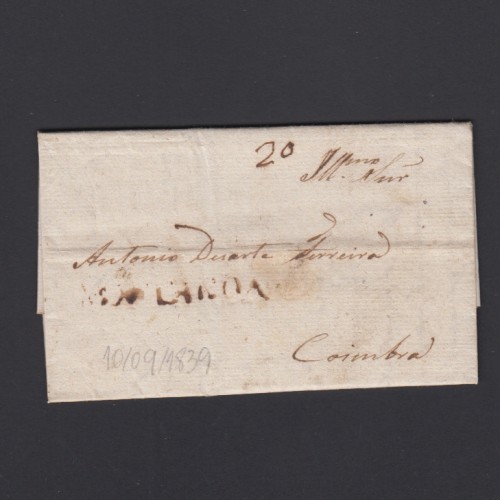 20
Ill.mo Snr
Antonio Duarte Ferreira
Coimbra
10/09/1839